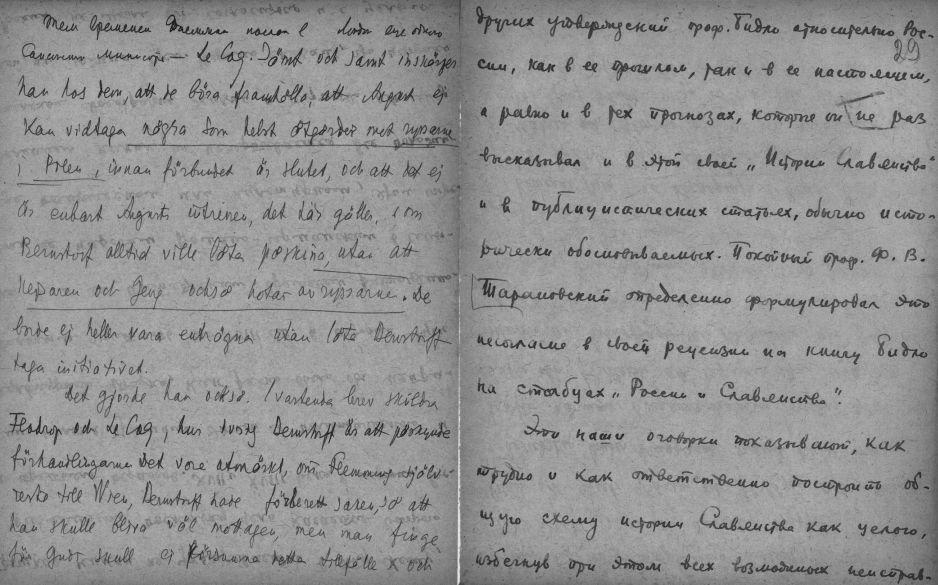 Тем временем
Le Coq. Jämt och samt inskärper
han hos dem, att de böra framhålla, att August ej
kan vidtaga några som helst åtgärder mot ryssarne
i Polen, innan förbundet är slutet, och att det ej
är enbart Augusts intressen, det här gäller, som
Bernstorf alltid ville låta påskina, utan att
kejsaren och Jeng också hotas av ryssarne. De
borde ej heller vara entrögna utan låta Bernstrff
taga initiativet.
Det gjorde han också. I vartenda brev skildra
Flodrop och Le Coq, hur ivrig Bernstrff är att påskynda
förhandlingarna. Det vore utmärkt, om Flemming själv
reste till Wien, Bernstrff hade förberett saken, så att
han skulle bliva väl mottagen, men man finge
för Guds skull ej försumma detta tillfälle och
29
других утверждений проф. Бидло относительно Рос-
сии, как в ее прошлом, так и в ее настоящем,
а равно и в тех прогнозах, которые он не раз
высказывал и в этой своей „Истории Славянства"
и в публицистических статьях, обычно исто-
рически обосновываемых. Покойный проф. Ф. В.
Тарановский определенно формулировал это
несогласие в своей рецензии на книгу Бидло
на столбцах „России и Славянства".
Эти наши оговорки показывают, как
трудно и как ответственно построить об-
щую схему истории Славянства как целого,
избегнув при этом всех возможных неисправ-